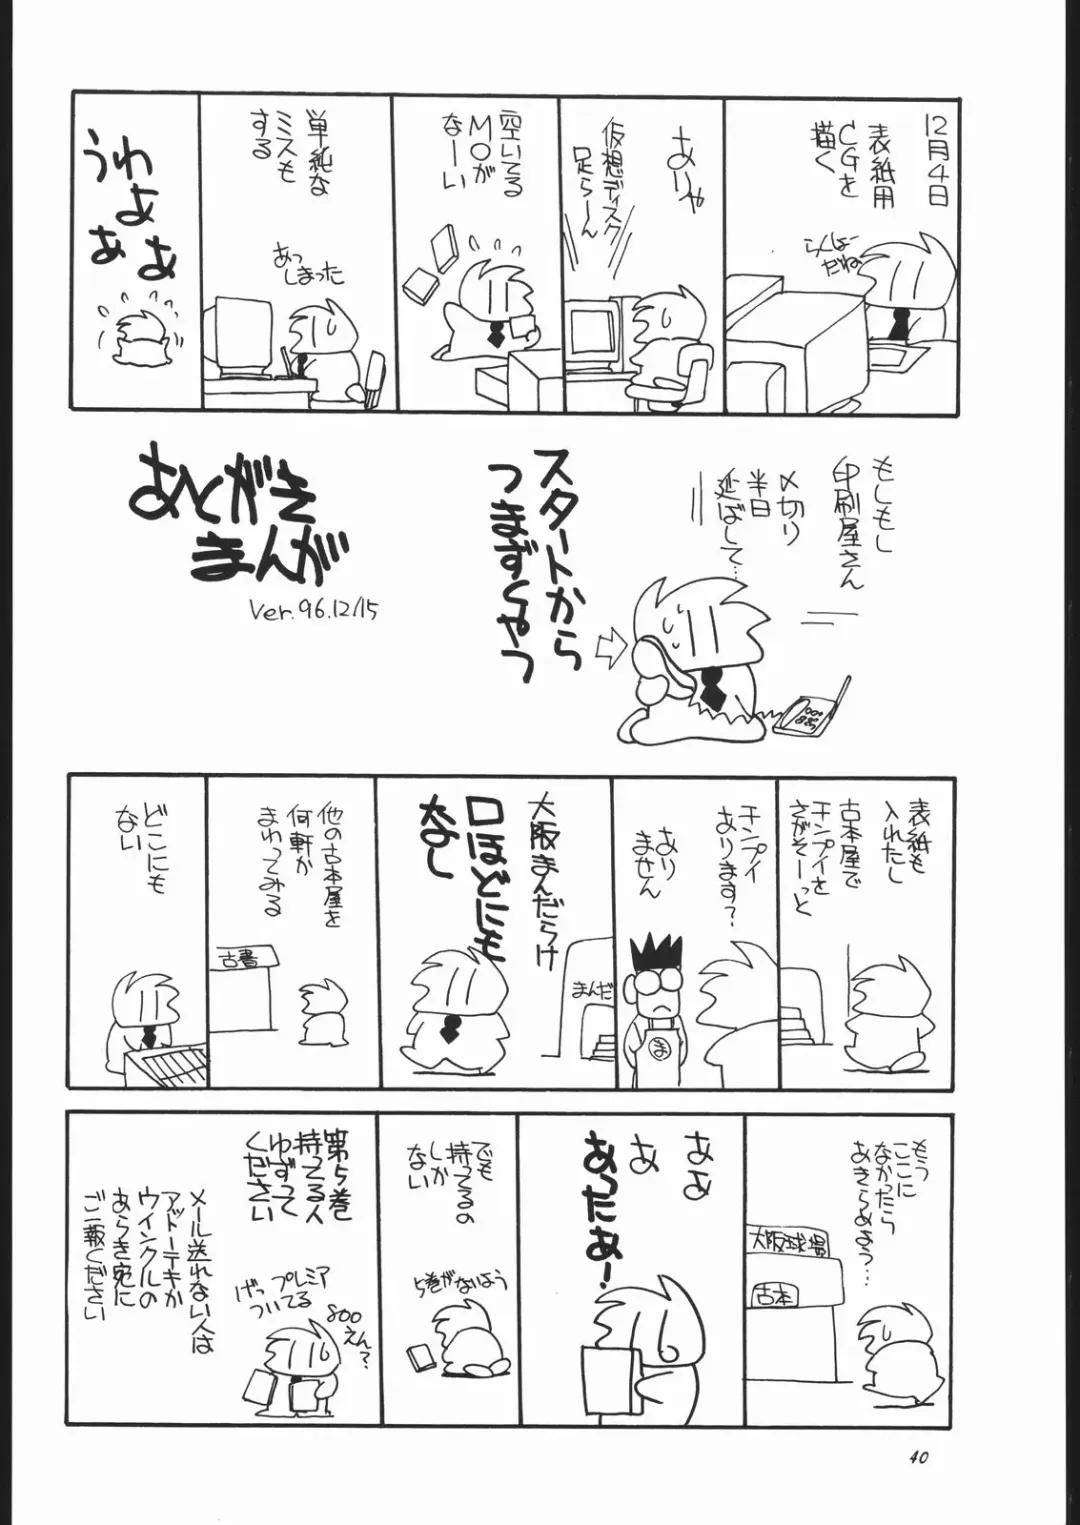 12月4日
表紙用
CGを
描く
らくしょー
だね
ありゃ
仮想ディスク
足らーん
空いてる
MOが
なーい
単純な
ミスも
する
あっ
しまった
うわ
よよ
ああ
もしもし
印刷屋さん
〆切り
半日
延ばして…
スタートから
つまずくやつ
あとがき
まんが
Ver.96.12/15
表紙も
入れたし
古本屋で
チンプイを
さがそーっと
チンプイ
ありますか?
あり
ません
ま
大阪まんだらけ
まんだ
口ほどにも
なし
他の古本屋を
何軒か
まわってみる
古書
どこにも
ない
もう
ここに
なかったら
あきらめよう…
大阪球場
古本
ああ
あ
あったあー!
でも
持ってるの
しか
ない
5巻がないよう
第5巻
持ってる人
ゆずって
ください
げっ プレミア
ついてる
800
えん?
メール送れない人は
アットーテキか
ウインクルの
あらき宛に
ご一報ください
40